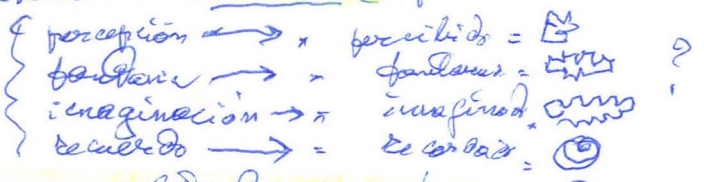 percepción → " percibido = ?
fantasía → "
imaginación → " imaginad.
recuerdo → = recordad. =